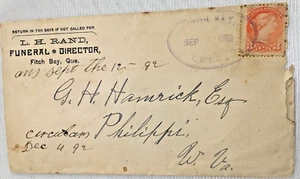 RETURN IN TEN DAYS IF NOT CALLED FOR.
L. H. RAND,
FUNERAL DIRECTOR,
Fitch Bay, Que.
SEP
ans Sept the 12 - 92
G. H. Hamrick, Esq
circulars Philippi,
Dec 4, 92
W. Va.